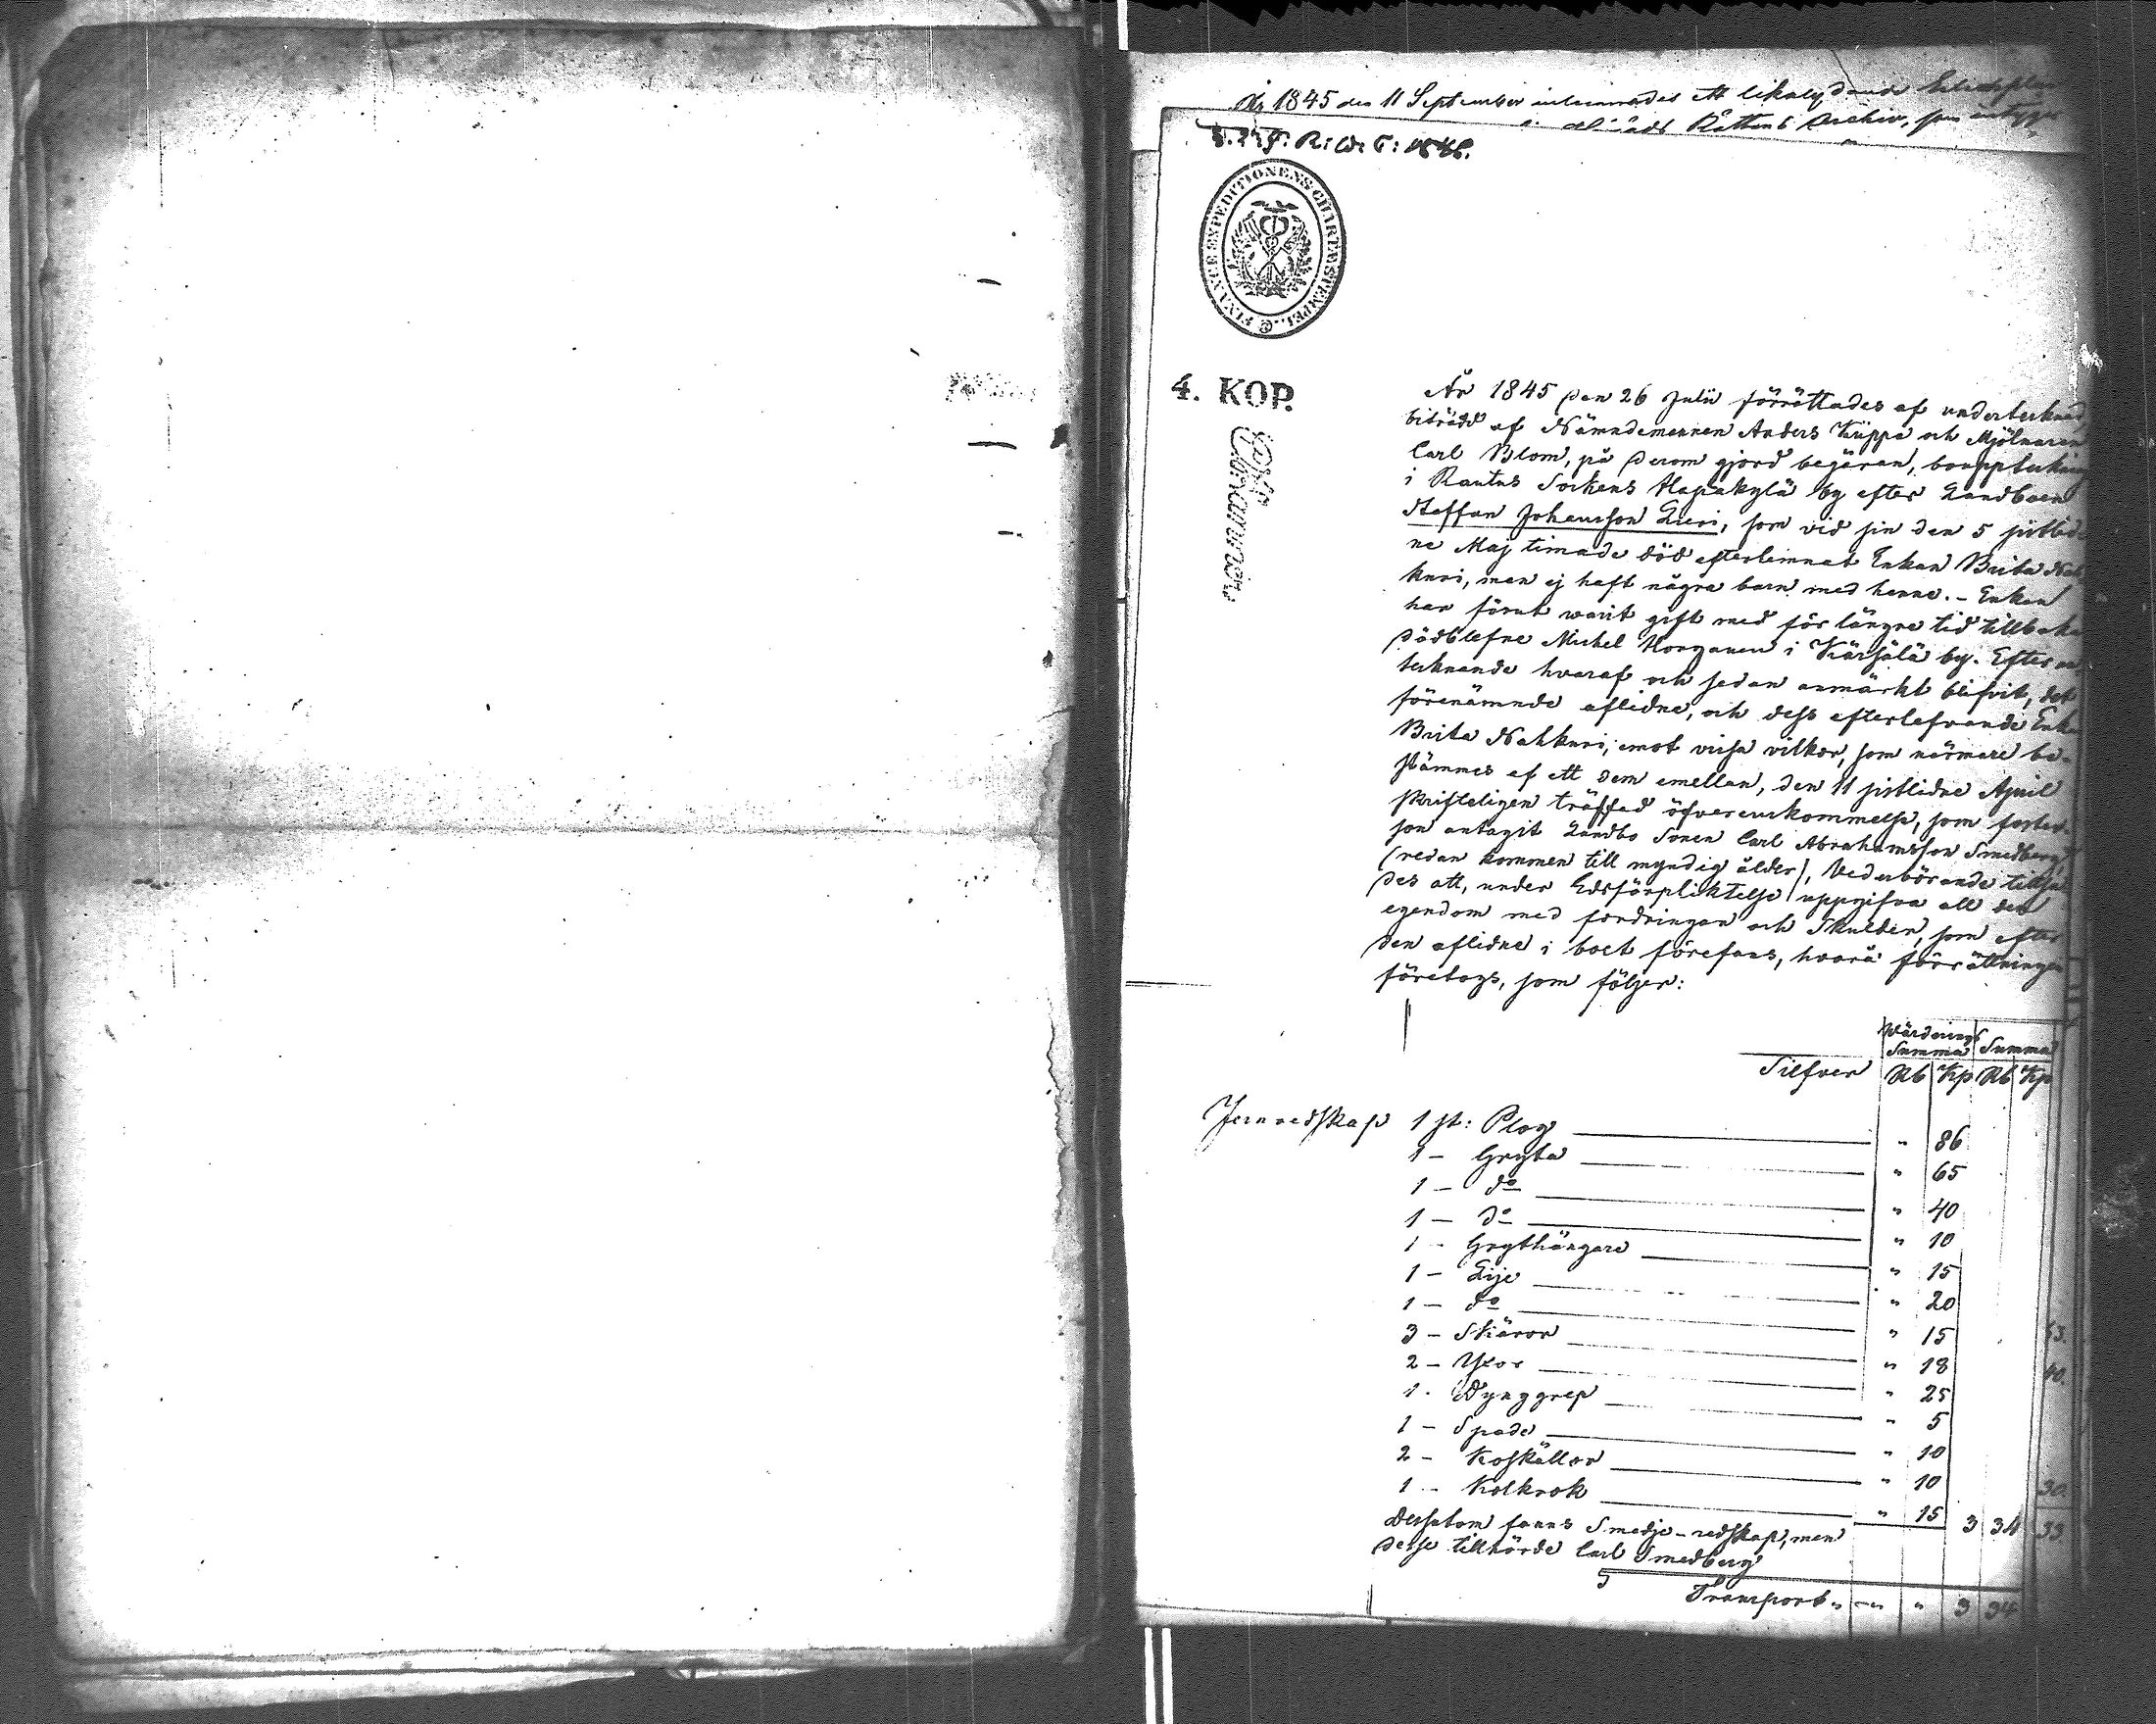 År 1845 den 11 September inlemnades ett likalydande
Härads Rättens Archiv, som intygar
FINANCE EXPEDITIONENS CHARTÆ STEMPEL
4. KOP.
År 1845 den 26 Julii förrättades af undertecknad,
biträdd af Nämndemannen Anders Käppä och Mjölnaren
Carl Blom, på derom gjord begäran, bouppteckning
i Rautus Sockens Hapakylä by efter Landboen
Staffan Johansson Lieri, som vid sin den 5 sistlid-
ne Maj timade död efterlemnat Enkan Brita Nah
kuri, men ej haft några barn med henne. – Enkan
har förut warit gift med för längre tid tillbaka
dödblefne Michel Honganen i Kärsälä by. Efter an
tecknande hvaraf och sedan anmärkt blifvit, det
förenämnde aflidne, och dess efterlefvande Enka
Brita Nahkuri, emot vissa vilkor, som närmare be-
stämmes af ett dem emellan, den 11 sistlidne April
skrifteligen träffad öfverenskommelse, som foster-
son antagit Landbo Sonen Carl Abrahamsson Smedberg
(redan kommen till myndig ålder), Vederbörande tillsa
des att, under Edsförpliktelse uppgifva all den
egendom med fordringar och Skulder, som efter
den aflidne i boet förefans, hvarå förrättningen
företogs, som följer:
Wärderings
Summa Summa
Silfver Rb Kp Rb Kp
Jernredskap 1 st: Plog " 86
1 – Gryta " 65
1 – do " 40
1 – do " 10
1 – Grythängare " 15
1 – Lije " 20
1 – do " 15
3 – Skäror " 18
2 – Yxor " 25
1 – Dynggrep " 5
1 – Spade " 10
2 – Koskällor " 10
1 – Kolkrok " 15 3 34
Dessutom fanns Smedje-redskap, men
desse tillhörde Carl Smedberg
Transport " – " " 3 34